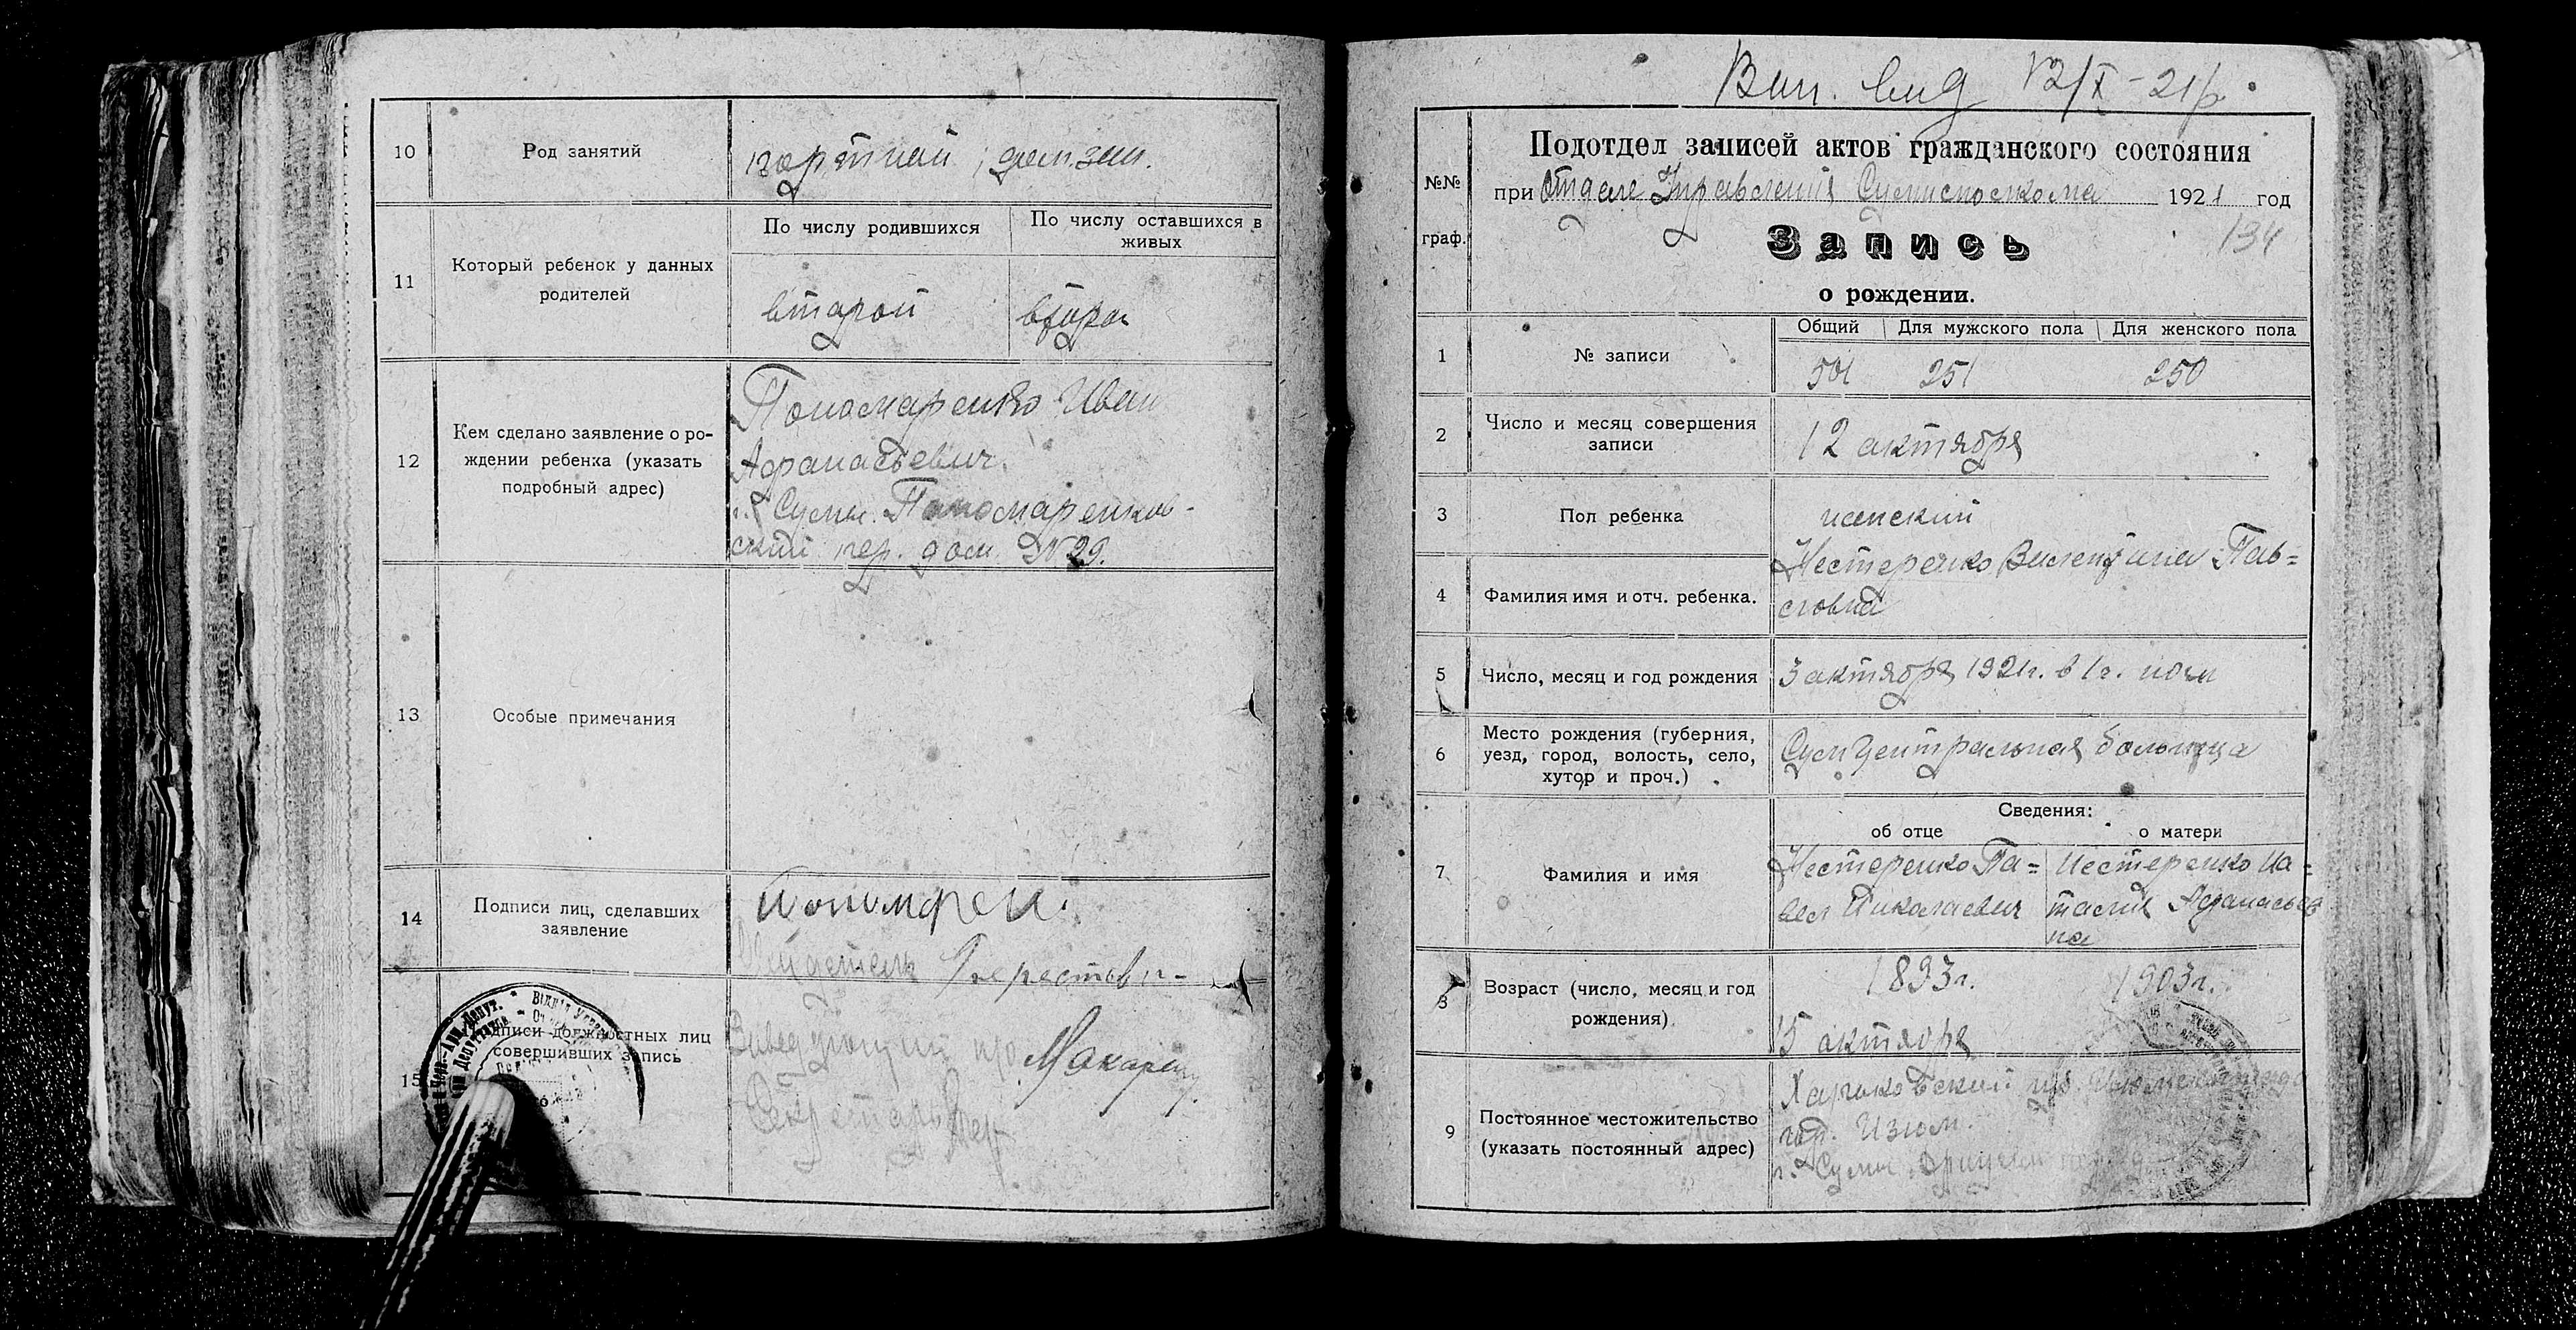 10
Род занятий
портной; дом. зан.
11
Который ребенок у данных
родителей
По числу родившихся
По числу оставшихся в
живых
второй
втора
12
Кем сделано заявление о ро-
ждении ребенка (указать
подробный адрес)
Пономаренко Иван
Афанасьевич.
г. Сумы. Пономаренков-
ский пер. дом №29.
13
Особые примечания
14
Подписи лиц, сделавших
заявление
15
Подписи должностных лиц
совершивших запись
Заведующий
Секретарь
Вып. вид 12/X-21р.
№№
граф.
Подотдел записей актов гражданского состояния
при Отделе Управления Сумисполкома 1921 год
134
Запись
о рождении.
1
№ записи
Общий Для мужского пола Для женского пола
501 251 250
2
Число и месяц совершения
записи
12 октября
3
Пол ребенка
женский
4
Фамилия имя и отч. ребенка.
Нестеренко Валентина Пав=
ловна
5
Число, месяц и год рождения
3 октября 1921г. в 1ч. ночи
6
Место рождения (губерния,
уезд, город, волость, село,
хутор и проч.)
Сум Центральная больница
7
Фамилия и имя
Сведения:
об отце
о матери
Нестеренко Па=
вел Николаевич
Нестеренко На=
талия Афанасьев
на
8
Возраст (число, месяц и год
рождения)
1893г.
15 октября
1903г.
9
Постоянное местожительство
(указать постоянный адрес)
Харьковский губ. Изюмского уезда
гор. Изюм.
г. Сумы